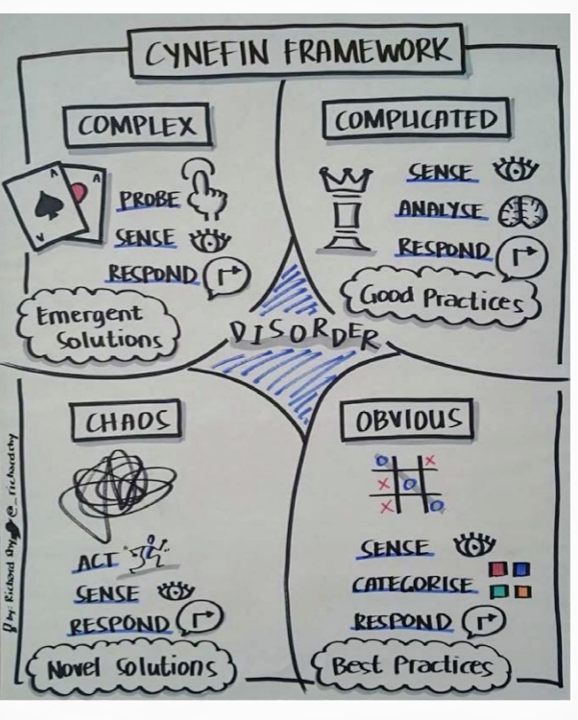 CYNEFIN FRAMEWORK
COMPLEX
A
A
V
PROBE
SENSE
RESPOND
Emergent
Solutions
COMPLICATED
SENSE
ANALYSE
RESPOND
Good Practices
DISORDER
CHAOS
ACT
SENSE
RESPOND
Novel Solutions
OBVIOUS
O X
X O
X O
SENSE
CATEGORISE
RESPOND
Best Practices
by: Richard Shy @_richardshy